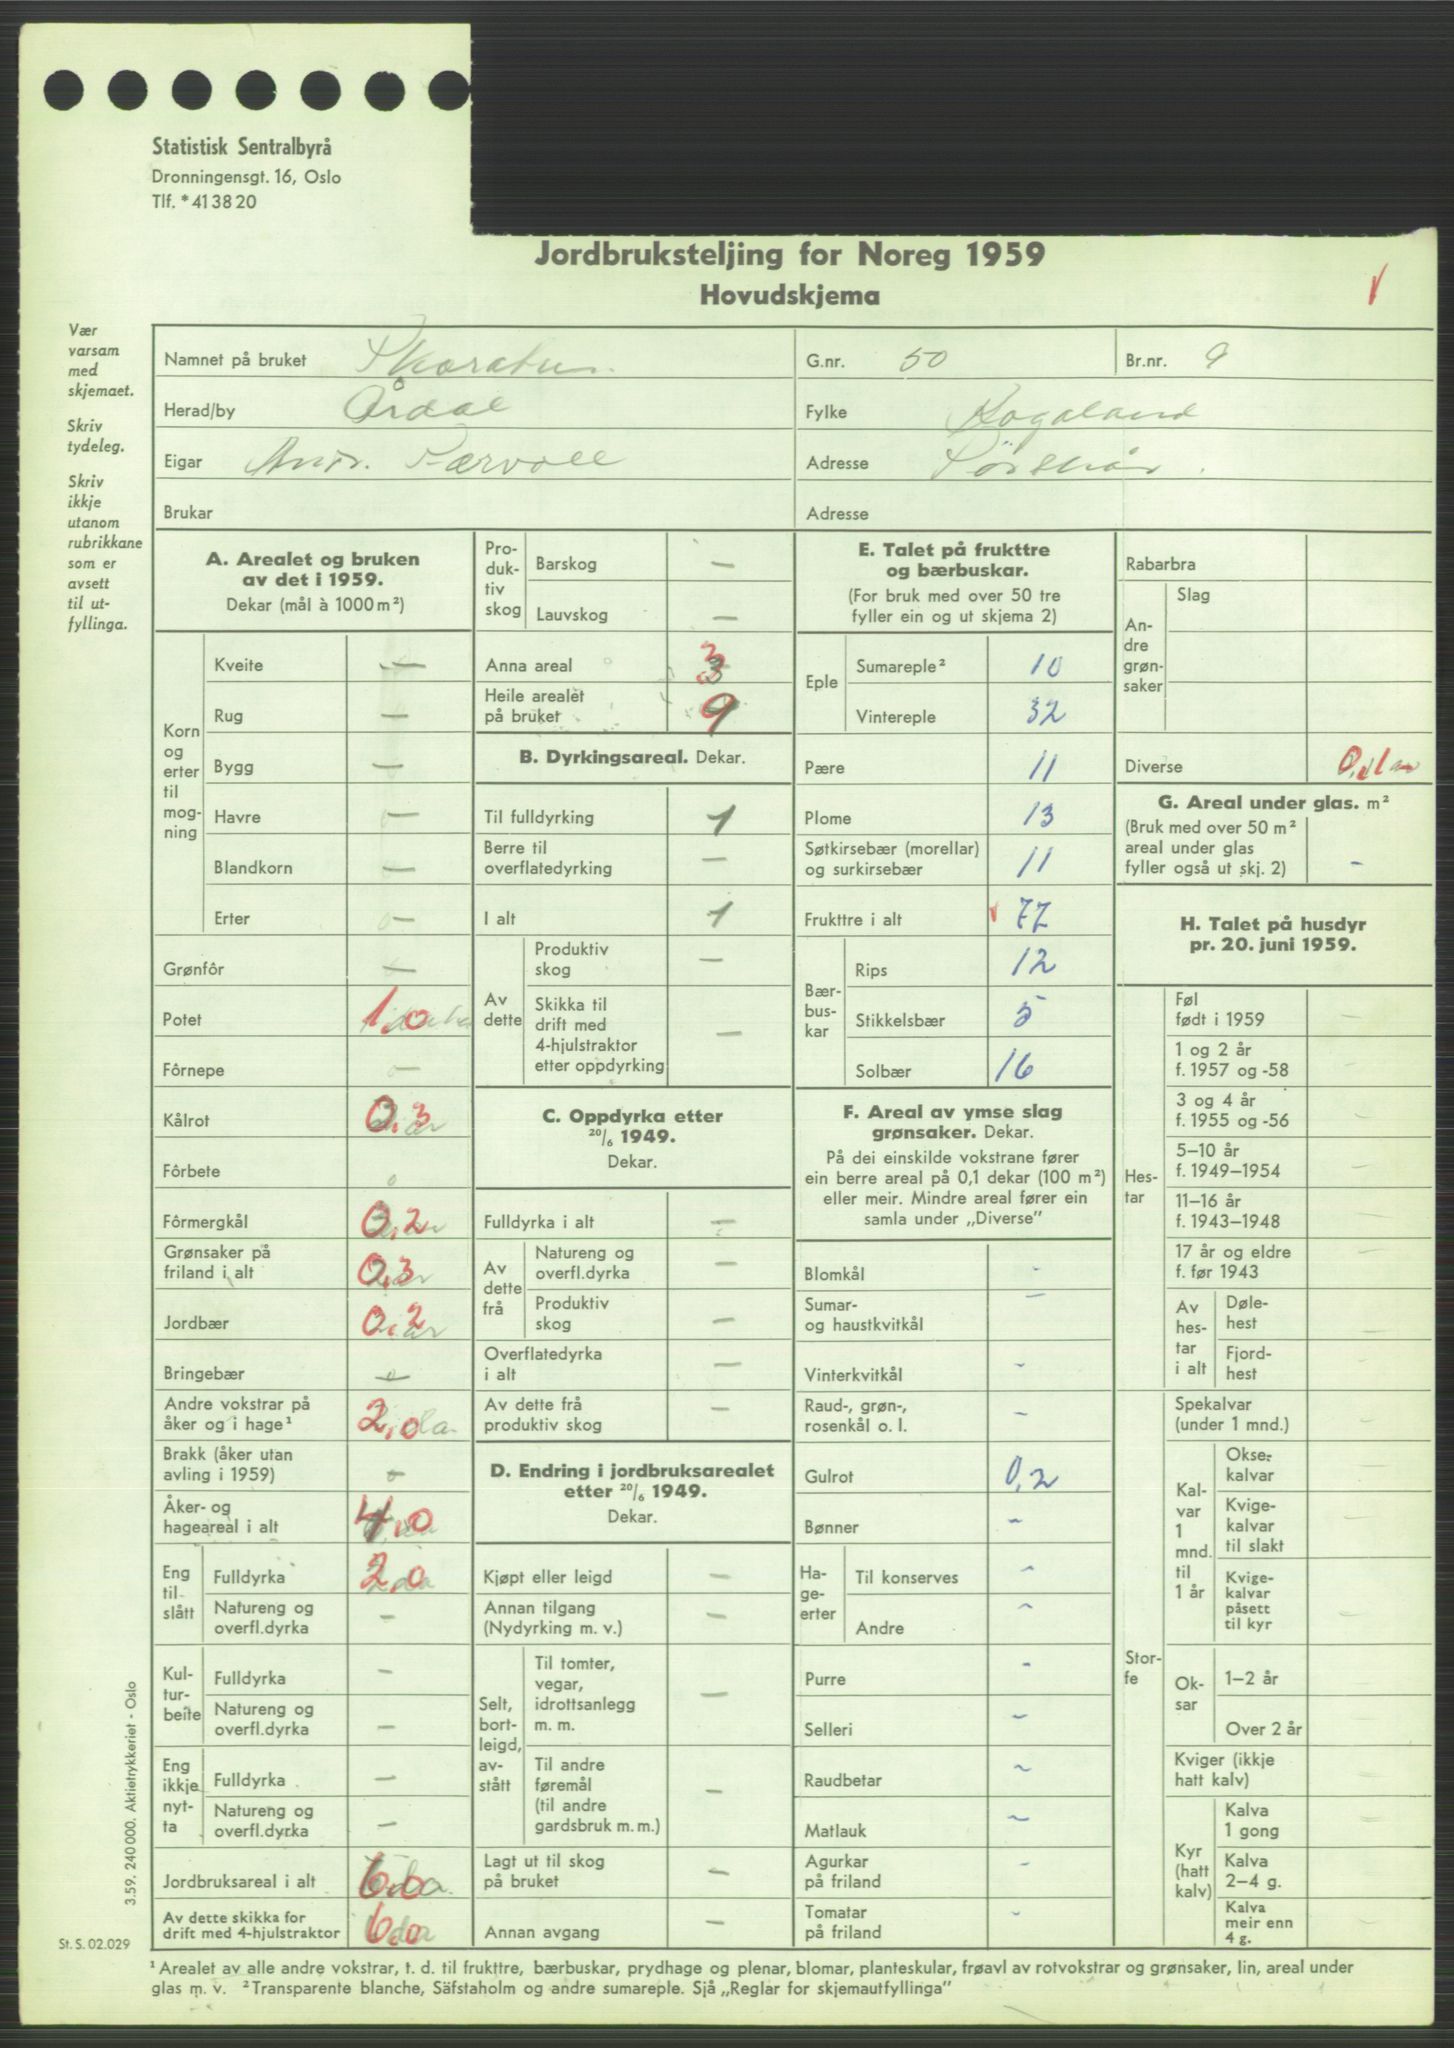 Statistisk Sentralbyrå
Dronningensgt. 16, Oslo
Tlf. * 41 38 20
Jordbruksteljing for Noreg 1959
Hovudskjema
Vær
varsam
med
skjemaet.
Skriv
tydeleg.
Skriv
ikkje
utanom
rubrikkane
som er
avsett
til ut-
fyllinga.
Namnet på bruket
G.nr. 50
Br.nr. 9
Herad/by Årdal
Fylke Rogaland
Eigar
Adresse
Brukar
Adresse
A. Arealet og bruken
av det i 1959.
Dekar (mål à 1000 m²)
Korn
og
erter
til
mog-
ning
Kveite —
Rug —
Bygg —
Havre —
Blandkorn —
Erter —
Grønfôr —
Potet 1,0
Fôrnepe
Kålrot 0,3
Fôrbete
Fôrmergkål 0,2
Grønsaker på
friland i alt 0,3
Jordbær 0,2
Bringebær
Andre vokstrar på
åker og i hage¹ 2,0
Brakk (åker utan
avling i 1959)
Åker- og
hageareal i alt 4,0
Eng
til
slått
Fulldyrka 2,0
Natureng og
overfl.dyrka —
Kul-
tur-
beite
Fulldyrka —
Natureng og
overfl.dyrka —
Eng
ikkje
nyt-
ta
Fulldyrka —
Natureng og
overfl.dyrka —
Jordbruksareal i alt 6,0
Av dette skikka for
drift med 4-hjulstraktor 6,0
Pro-
duk-
tiv
skog
Barskog —
Lauvskog —
Anna areal 3
Heile arealet
på bruket 9
B. Dyrkingsareal. Dekar.
Til fulldyrking 1
Berre til
overflatedyrking —
I alt 1
Av
dette
Produktiv
skog —
Skikka til
drift med
4-hjulstraktor
etter oppdyrking —
C. Oppdyrka etter
20/6 1949.
Dekar.
Fulldyrka i alt —
Av
dette
frå
Natureng og
overfl.dyrka —
Produktiv
skog —
Overflatedyrka
i alt —
Av dette frå
produktiv skog —
D. Endring i jordbruksarealet
etter 20/6 1949.
Dekar.
Kjøpt eller leigd —
Annan tilgang
(Nydyrking m. v.) —
Selt,
bort-
leigd,
av-
stått
Til tomter,
vegar,
idrottsanlegg
m. m. —
Til andre
føremål
(til andre
gardsbruk m. m.) —
Lagt ut til skog
på bruket —
Annan avgang —
E. Talet på frukttre
og bærbuskar.
(For bruk med over 50 tre
fyller ein og ut skjema 2)
Eple
Sumareple² 10
Vintereple 32
Pære 11
Plome 13
Søtkirsebær (morellar)
og surkirsebær 11
Frukttre i alt 77
Bær-
bus-
kar
Rips 12
Stikkelsbær 5
Solbær 16
F. Areal av ymse slag
grønsaker. Dekar.
På dei einskilde vokstrane fører
ein berre areal på 0,1 dekar (100 m²)
eller meir. Mindre areal fører ein
samla under „Diverse”
Blomkål -
Sumar-
og haustkvitkål —
Vinterkvitkål -
Raud-, grøn-,
rosenkål o. l. -
Gulrot 0,2
Bønner -
Ha-
ge-
erter
Til konserves -
Andre -
Purre -
Selleri -
Raudbetar -
Matlauk -
Agurkar
på friland -
Tomatar
på friland -
Rabarbra
An-
dre
grøn-
saker
Slag
Diverse 0,1
G. Areal under glas. m²
(Bruk med over 50 m²
areal under glas
fyller også ut skj. 2) -
H. Talet på husdyr
pr. 20. juni 1959.
Hes-
tar
Føl
født i 1959 —
1 og 2 år
f. 1957 og -58 —
3 og 4 år
f. 1955 og -56 —
5–10 år
f. 1949–1954 —
11–16 år
f. 1943–1948 —
17 år og eldre
f. før 1943 —
Av
hes-
tar
i alt
Døle-
hest —
Fjord-
hest —
Stor-
fe
Spekalvar
(under 1 mnd.) —
Kal-
var
1
mnd.
til
1 år
Okse-
kalvar —
Kvige-
kalvar
til slakt —
Kvige-
kalvar
påsett
til kyr —
Ok-
sar
1–2 år —
Over 2 år —
Kviger (ikkje
hatt kalv) —
Kyr
(hatt
kalv)
Kalva
1 gong —
Kalva
2–4 g. —
Kalva
meir enn
4 g. —
3.59. 240 000. Aktietrykkeriet - Oslo
St. S. 02.029
¹ Arealet av alle andre vokstrar, t. d. til frukttre, bærbuskar, prydhage og plenar, blomar, planteskular, frøavl av rotvokstrar og grønsaker, lin, areal under
glas m. v. ² Transparente blanche, Säfstaholm og andre sumareple. Sjå „Reglar for skjemautfyllinga”